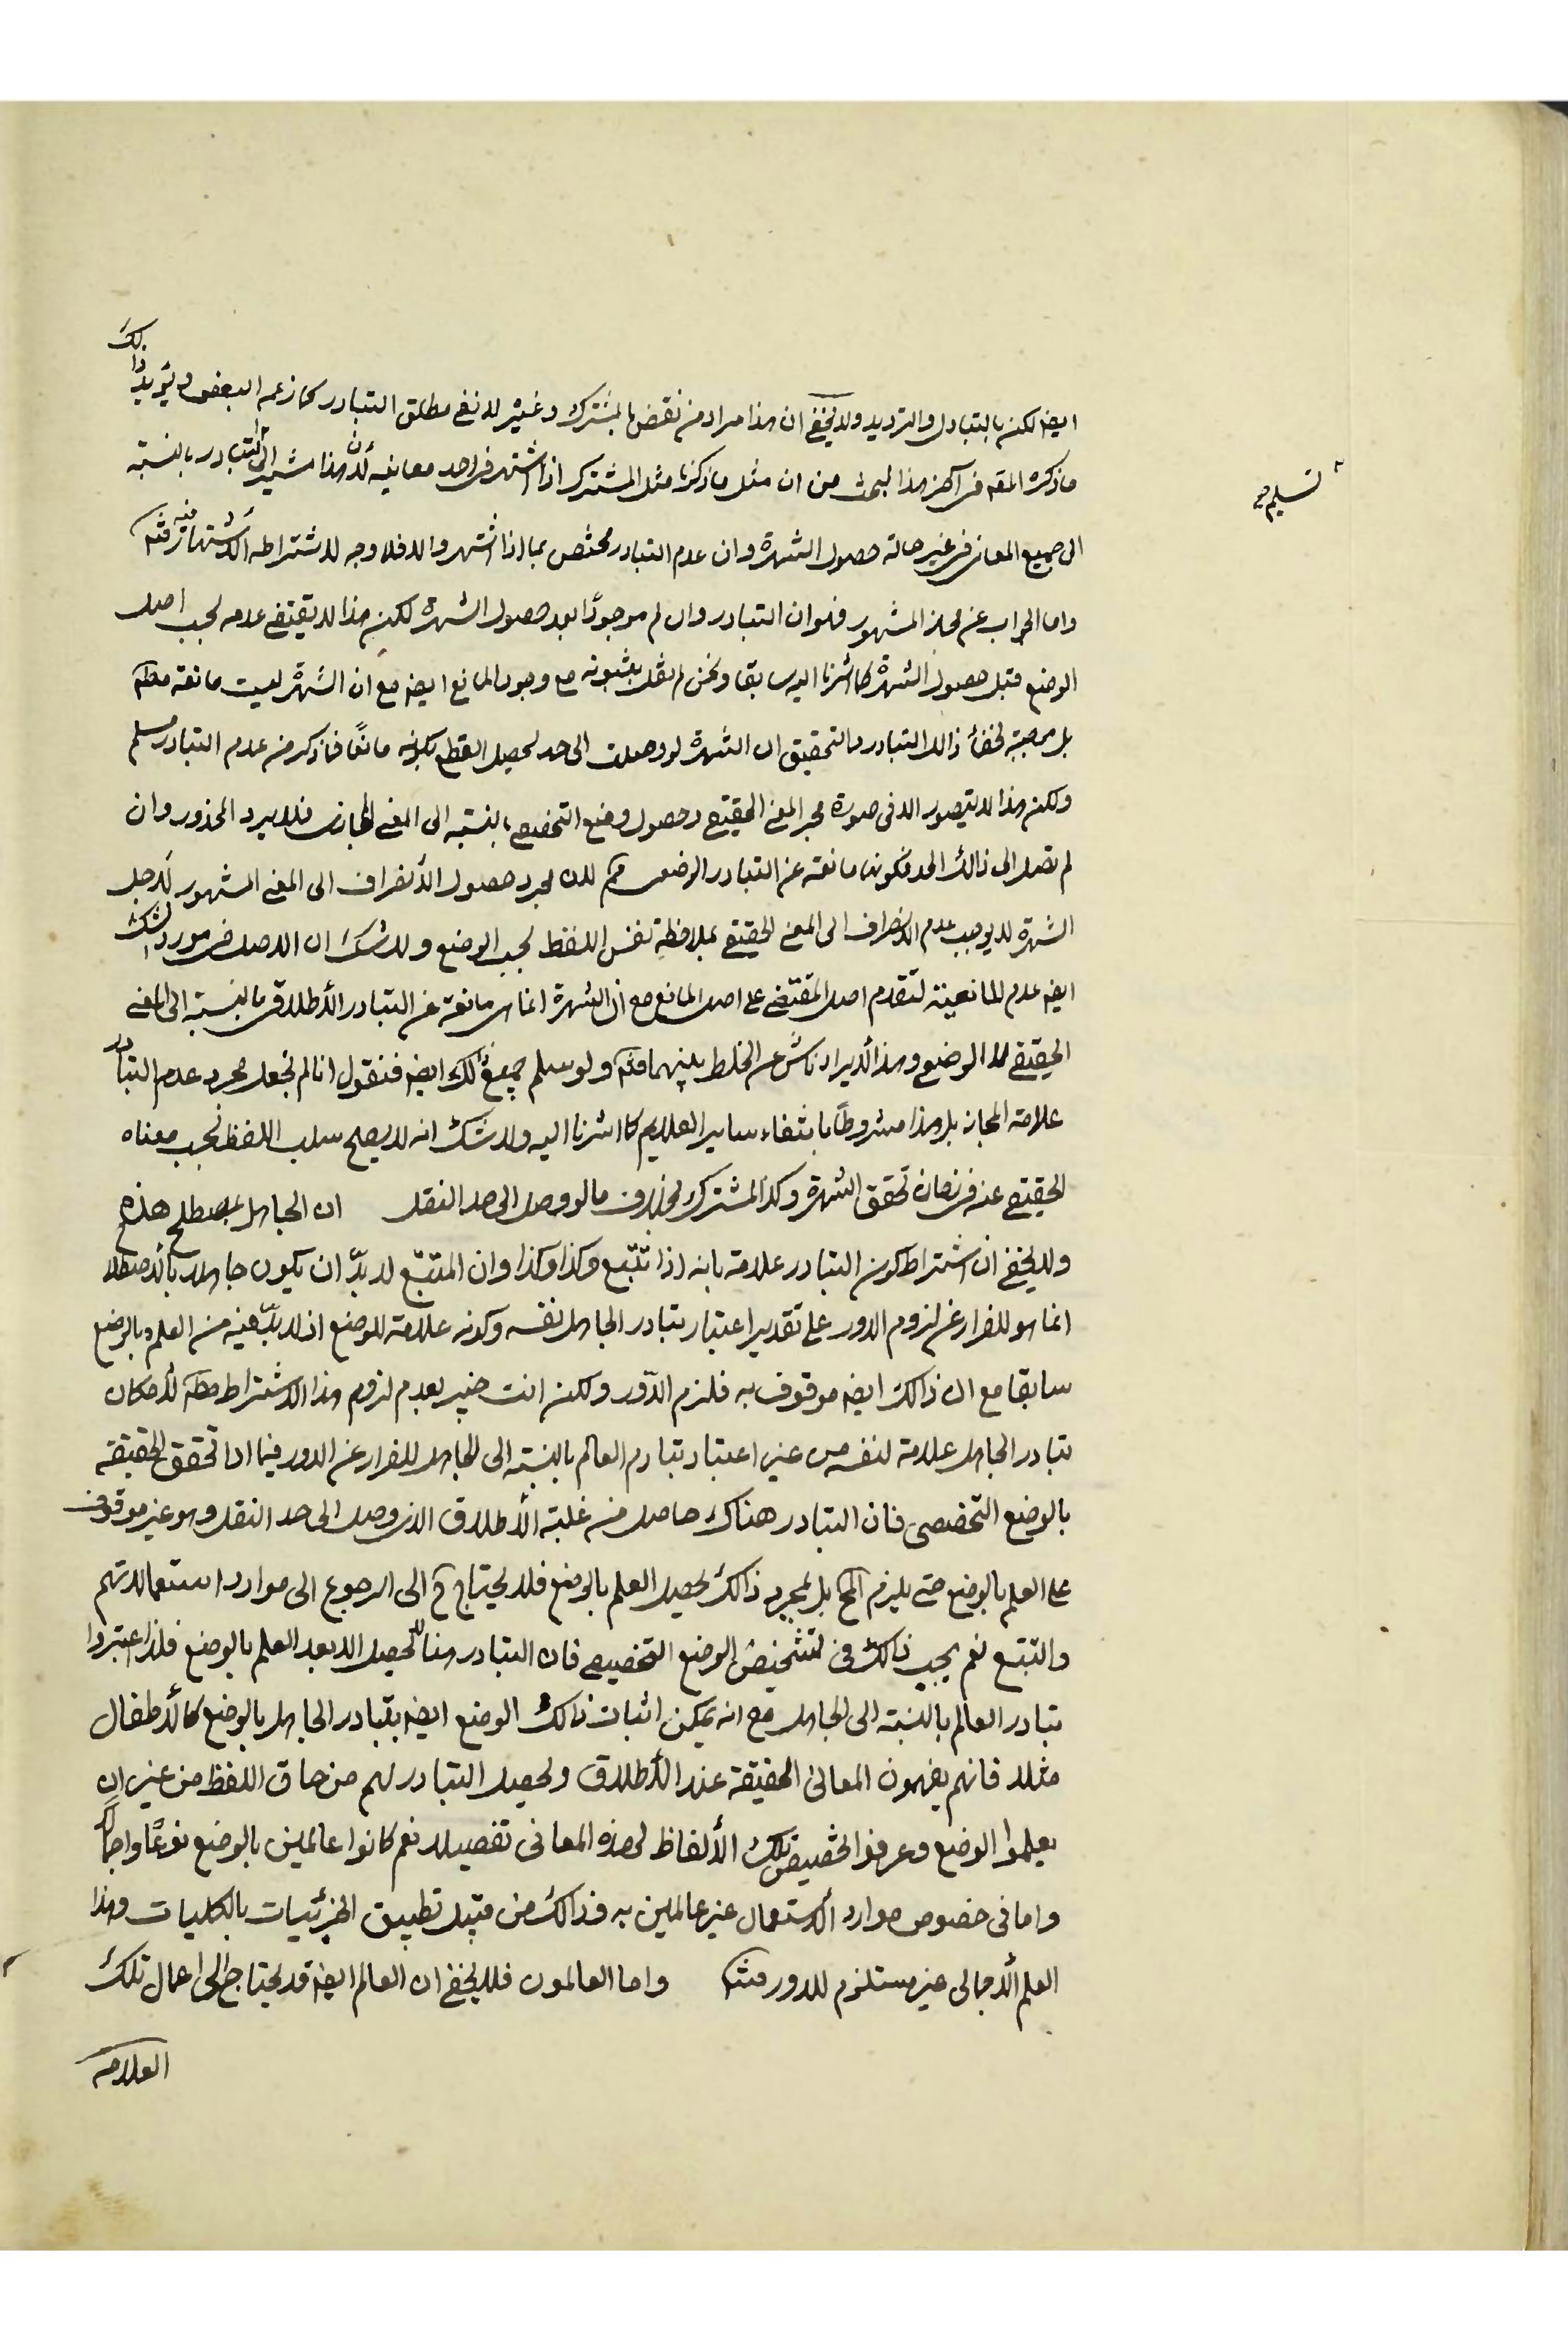 ايضا لكن بالتبادل والترديد ولا يخفى ان هذا مراد من نقض بالمشترك وغيره لا نفى مطلق التبادر كما زعمه البعض ويؤيد ذلك
ما ذكره المقه فى آخر هذا البحث من ان مثل ما ذكرنا مثل المشترك اذا اشتهر فى احد معانيه لان هذا مشير الى التبادر بالنسبة
الى جميع المعانى فى غير حالة حصول الشهرة وان عدم التبادر مختص بما اذا اشتهر والا فلا وجه لاشتراطه الاشتهار فيه فتم
واما الجواب عن مجاز المشهور فهو ان التبادر وان لم موجودًا بعد حصول الشهرة لكن هذا لا يقتضى عدمه بحسب اصل
الوضع قبل حصول الشهرة كما اشرنا اليه سابقا ونحن لم نقل بثبوته مع وجود المانع ايضا مع ان الشهرة ليست مانعة مطم
بل موجبة لخفأ ذالك التبادر والتحقيق ان الشهرة لو وصلت الى حد يحصل القطع بكونه مانعًا فما ذكر من عدم التبادر مسلم
ولكن هذا لا يتصور الا فى صورة هجر المعنى الحقيقى وحصول وضع التخصصى بالنسبة الى المعنى المجازى فلا يرد المحذور وان
لم تصل الى ذالك الحد فكونها مانعة عن التبادر الوضعى مم لان مجرد حصول الأنصراف الى المعنى المشهور لأجل
الشهرة لا يوجب عدم الأنصراف الى المعنى الحقيقى بملاحظة نفس اللفظ بحسب الوضع ولا شك ان الاصل فى مورد الشك
ايضا عدم المانعية لتقدم اصل المقتضى على اصل المانع مع أن الشهرة انما هى مانعة عن التبادر الأطلاقى بالنسبة الى المعنى
الحقيقى لا الوضعى وهذا الأيراد ناش عن الخلط بينهما فتم ولو سلم جميع ذلك ايضا فنقول انا لم نجعل مجرد عدم التبادر
علامة المجاز بل هذا مشروطًا بانتفاء ساير العلايم كما اشرنا اليه ولا شك انه لا يصح سلب اللفظ بحسب معناه
الحقيقى عنه فى زمان تحقق الشهرة وكذا المشترك بخلاف ما لو وصل الى حد النقل ان الجاهل بمصطلح هذه
ولا يخفى ان اشتراط كون التبادر علامة بانه اذا تتبع وكذا وكذا وان المتتبع لا بدّ ان يكون جاهلا بالأصطلاح
انما هو للفرار عن لزوم الدور على تقدير اعتبار تبادر الجاهل نفسه وكونه علامة للوضع اذ لا بدّ فيه من العلم بالوضع
سابقا مع ان ذالك ايضا موقوف به فلزم الدّور ولكن انت خبير بعدم لزوم هذا الاشتراط مطم لأمكان
تبادر الجاهل علامة لنفسه من غير اعتبار تبادر العالم بالنسبة الى الجاهل للفرار عن الدور فيما اذا تحقق الحقيقة
بالوضع التخصصى فان التبادر هناك حاصل من غلبة الأطلاق الذى وصل الى حد النقل وهو غير موقوف
على العلم بالوضع حتى يلزم المح بل بمجرد ذالك يحصل العلم بالوضع فلا يحتاج ح الى الرجوع الى موارد استعمالاتهم
والتتبع نعم يجب ذالك فى تشخيص الوضع التخصيصى فان التبادر هنا لا يحصل الا بعد العلم بالوضع فلذا اعتبروا
تبادر العالم بالنسبة الى الجاهل مع انه يمكن اثبات ذالك الوضع ايضا بتبادر الجاهل بالوضع كالأطفال
مثلا فانهم يفهمون المعانى الحقيقة عند الأطلاق ويحصل التبادر لهم من حاق اللفظ من غير ان
يعلموا الوضع وعرفوا تخصيص تلك الألفاظ لهذه المعانى تفصيلا نعم كانوا عالمين بالوضع نوعًا واجمالا
واما فى خصوص موارد الأستعمال غير عالمين به فذالك من قبيل تطبيق الجزئيات بالكليات وهذا
العلم الأجمالى غير مستلزم للدور فتم واما العالمون فلا يخفى ان العالم ايضا قد يحتاج الى اعمال تلك
العلامة